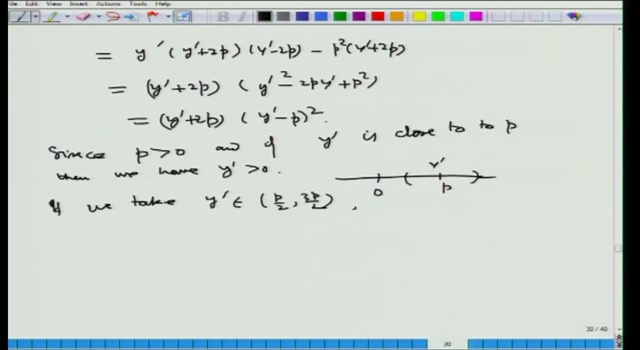 File Edit View Insert Actions Tools Help
= y'(y'+2p)(y'-2p) - p²(y'+2p)
= (y'+2p) (y'² - 2py' + p²)
= (y'+2p) (y'-p)².
Since p>0 and if y' is close to to p
then we have y'>0.
y'
0 p
If we take y' ∈ (p/2, 3p/2),
30 / 40
30